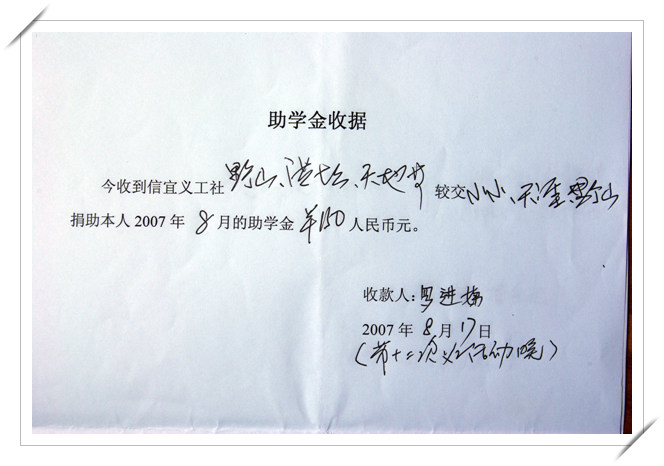 助学金收据
今收到信宜义工社 野山、洪七、天地 较交 小小、天涯、野山
捐助本人2007年 8 月的助学金 羊150 人民币元。
收款人：罗进梅
2007年 8 月 17 日
（第十二次义工活动）